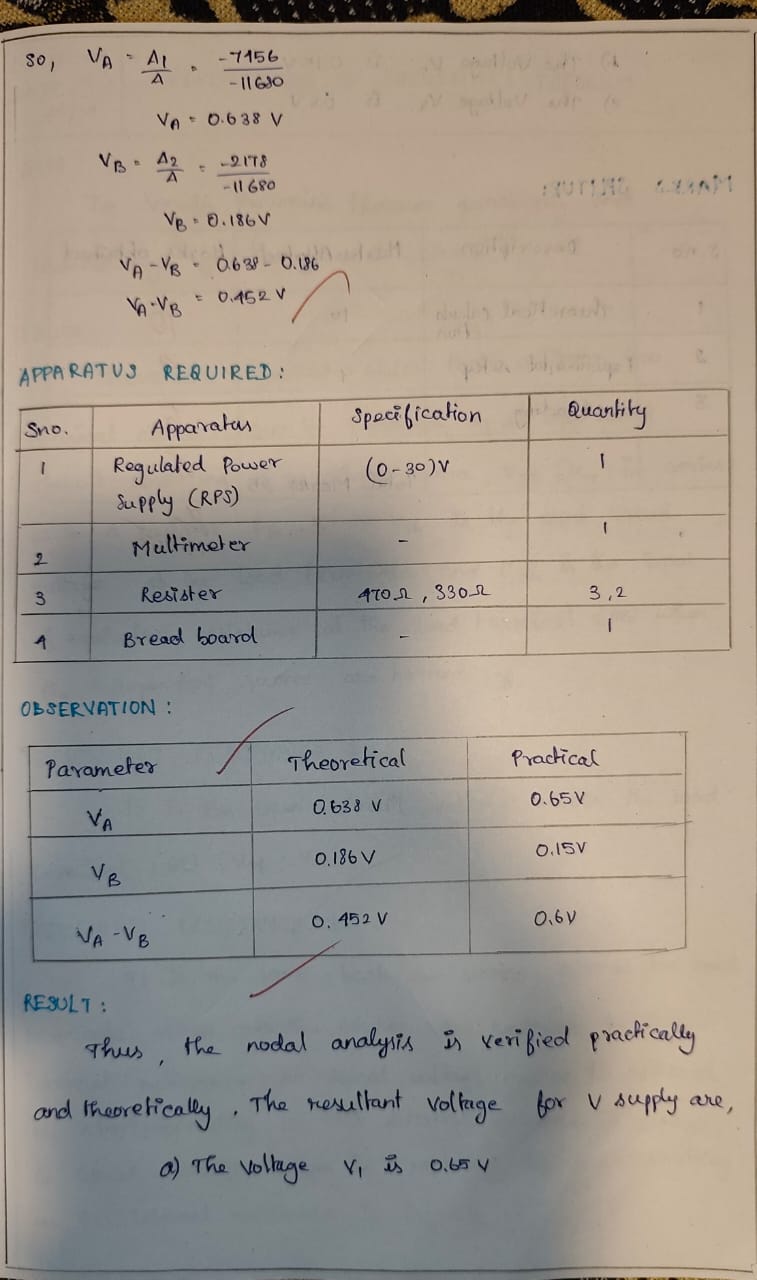 So, VA = Δ1/Δ = -7456/-11680
VA = 0.638 V
VB = Δ2/Δ = -2178/-11680
VB = 0.186V
VA - VB = 0.638 - 0.186
VA - VB = 0.452 V
APPARATUS REQUIRED:
Sno. Apparatus Specification Quantity
1 Regulated Power Supply (RPS) (0-30)V 1
2 Multimeter - 1
3 Resister 470Ω, 330Ω 3,2
4 Bread board - 1
OBSERVATION:
Parameter Theoretical Practical
VA 0.638 V 0.65V
VB 0.186V 0.15V
VA - VB 0.452 V 0.6V
RESULT:
Thus, the nodal analysis is verified practically
and theoretically. The resultant voltage for V supply are,
a) The voltage V1 is 0.65 V